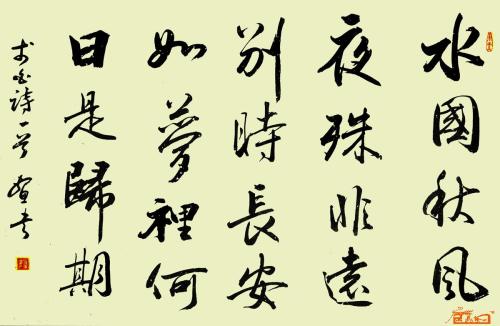 水國秋風
夜殊非遠
別時長安
如夢裡何
日是歸期
李白詩一首 書